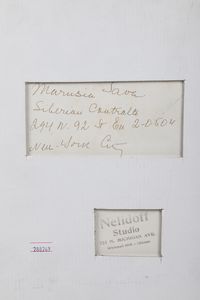 Marusia Sava
Siberian Contralto
294 W. 92 St En 2-0504
New York City
Nelidoff
Studio
N. MICHIGAN AVE.